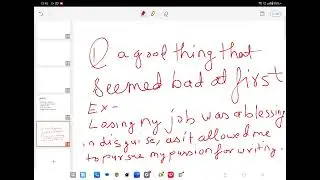 a good thing that
seemed bad at first
Ex-
Losing my job was a blessing
in disguise, as it allowed me
to pursue my passion for writing.